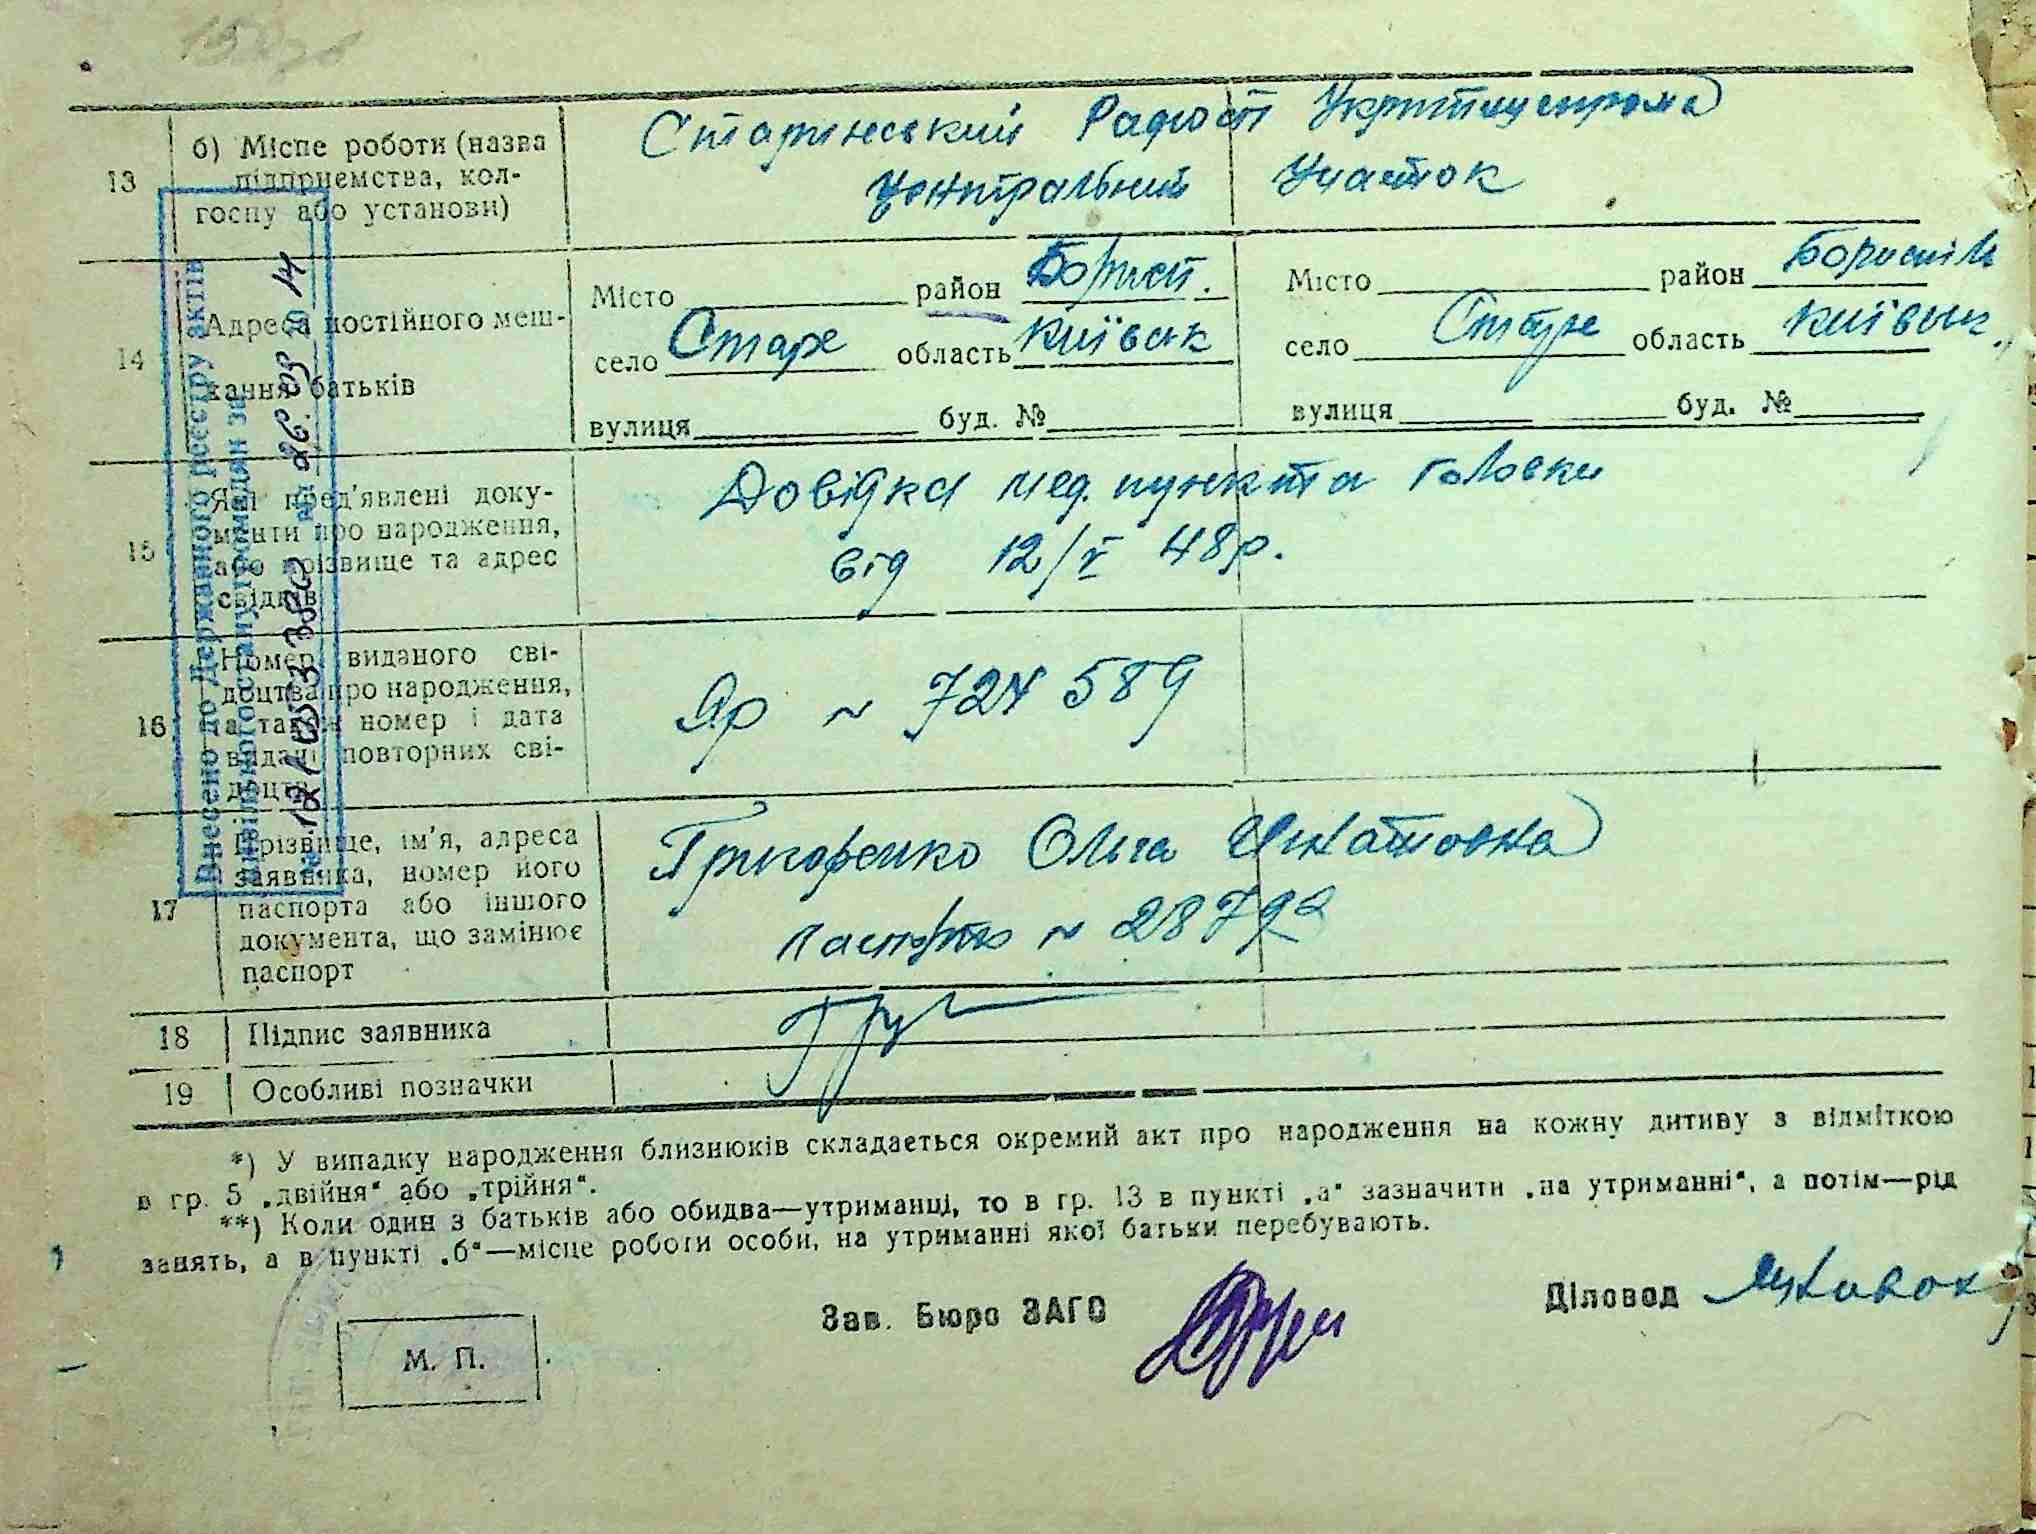 13
б) Місце роботи (назва
підприємства, кол-
госпу або установи)
Старинський Радгосп Укрптицепрома
Центральний Участок
14
Адреса постійного меш-
кання батьків
Місто район Борисп.
село Старе область Київськ
вулиця буд. №
Місто район Бориспіль
село Старе область Київськ.
вулиця буд. №
15
Які пред'явлені доку-
менти про народження,
або прізвище та адрес
свідків
Довідка мед. пункта Головки
від 12/V 48р.
16
Номер виданого сві-
доцтва про народження,
а також номер і дата
видачі повторних сві-
доцтв
Яр № 724589
17
Прізвище, ім'я, адреса
заявника, номер його
паспорта або іншого
документа, що замінює
паспорт
Григоренко Ольга Игнатовна
паспорт № 28792
18 Підпис заявника
19 Особливі позначки
*) У випадку народження близнюків складається окремий акт про народження на кожну дитину з відміткою
в гр. 5 „двійня“ або „трійня“.
**) Коли один з батьків або обидва—утриманці, то в гр. 13 в пункті „а“ зазначити „на утриманні“, а потім—рід
занять, а в пункті „б“—місце роботи особи, на утриманні якої батьки перебувають.
М. П.
Зав. Бюро ЗАГС
Діловод
Внесено до Державного реєстру актів
цивільного стану громадян за